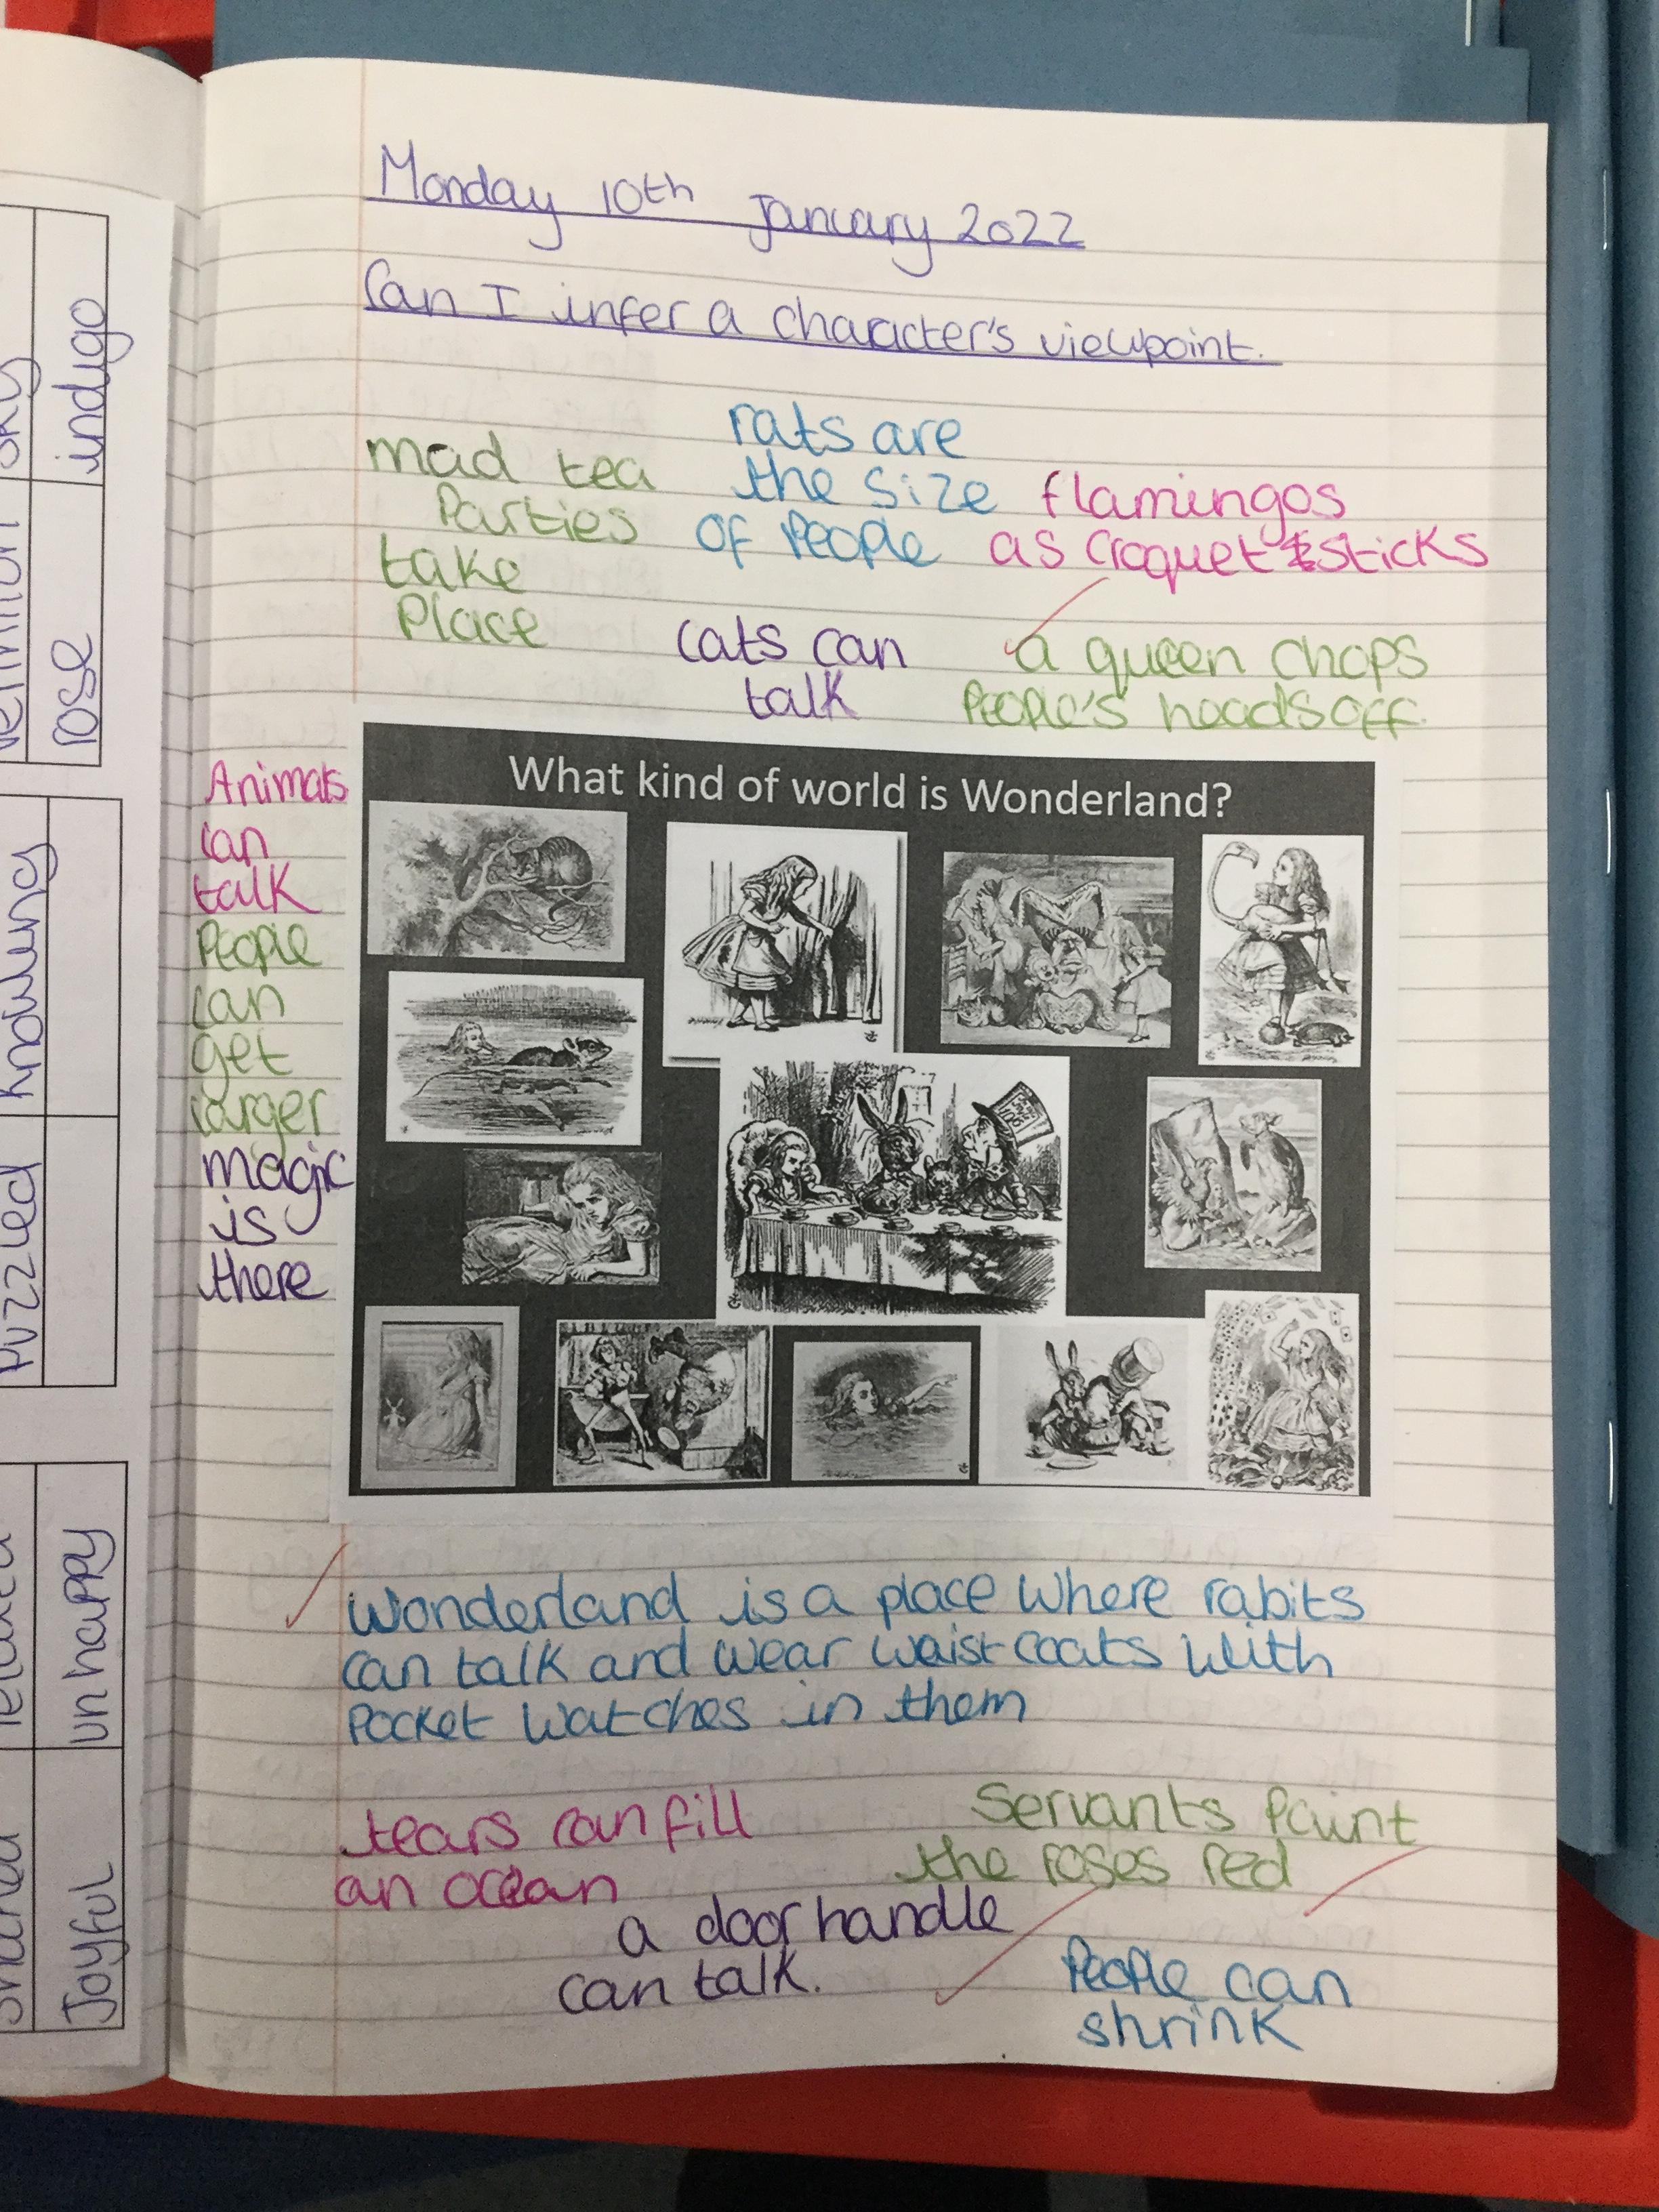 Monday 10th January 2022
Can I infer a character's viewpoint.
mad tea
Parties
take
Place
rats are
the size
of People
flamingos
as croquet sticks
cats can
talk
a queen chops
People's heads off.
What kind of world is Wonderland?
Animals
can
talk
People
can
get
larger
magic
is
there
Wonderland is a place where rabits
can talk and wear waistcoats with
Pocket watches in them
tears can fill
an ocean
Servants Paint
the roses red
a door handle
can talk.
People can
shrink
indigo
rose
knowing
Puzzled
unhappy
Joyful